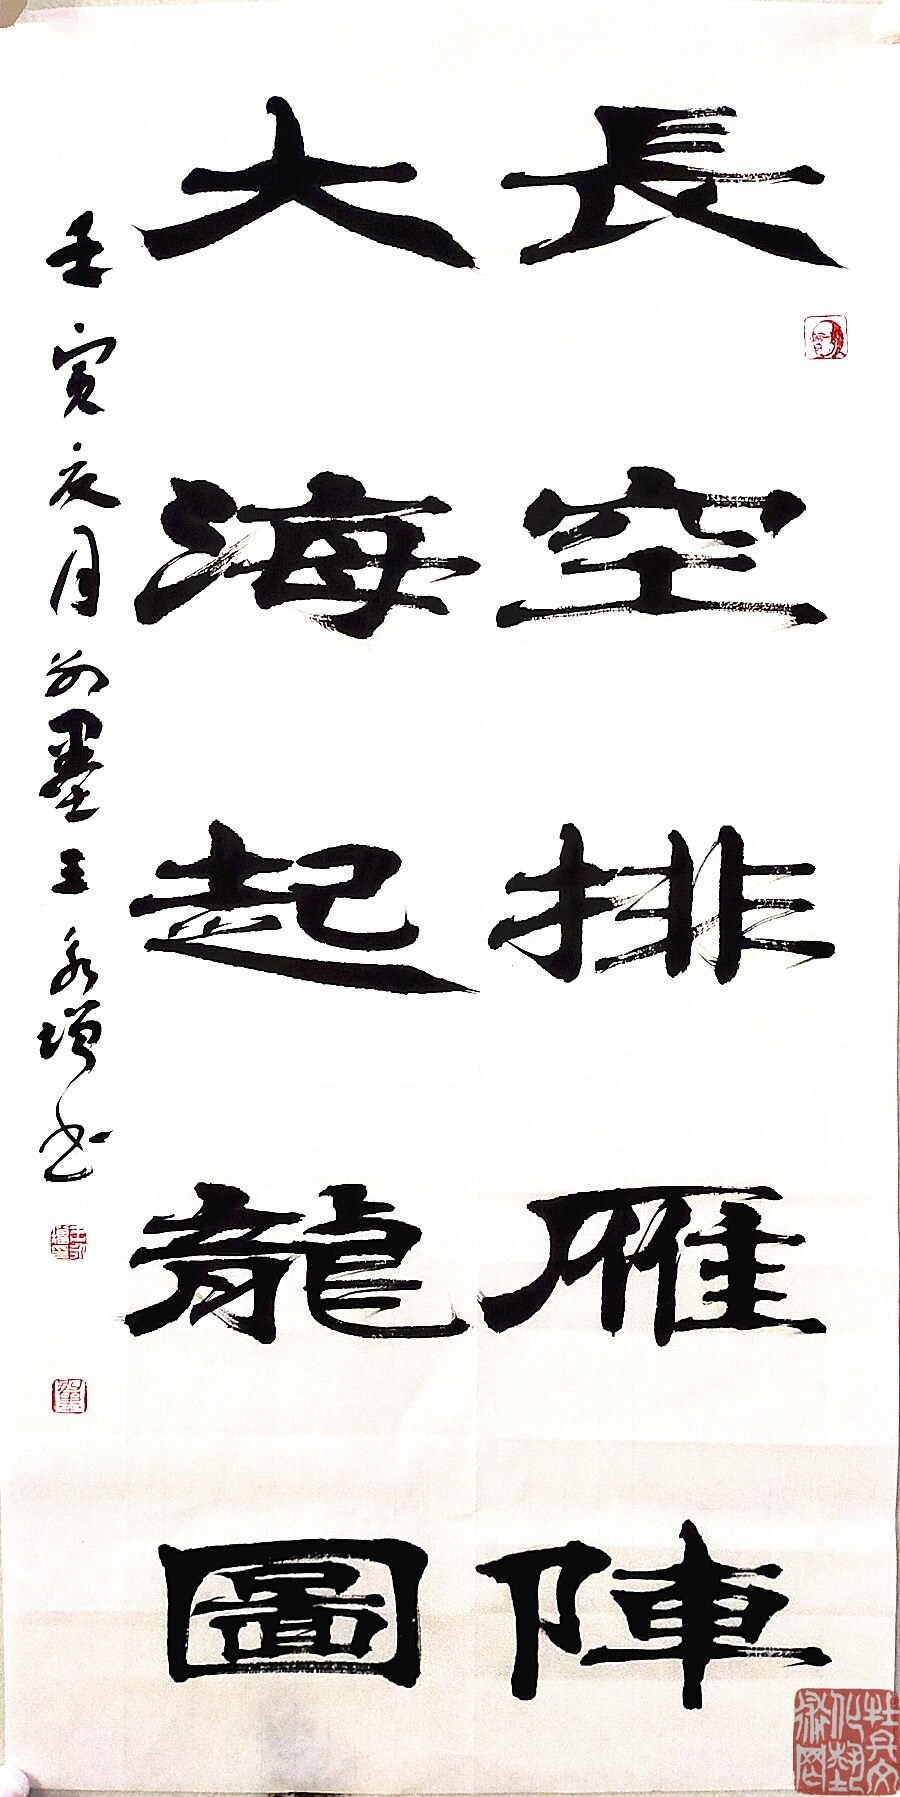 長空排雁陣
大海起龍圖
壬寅夏月 墨王永增书